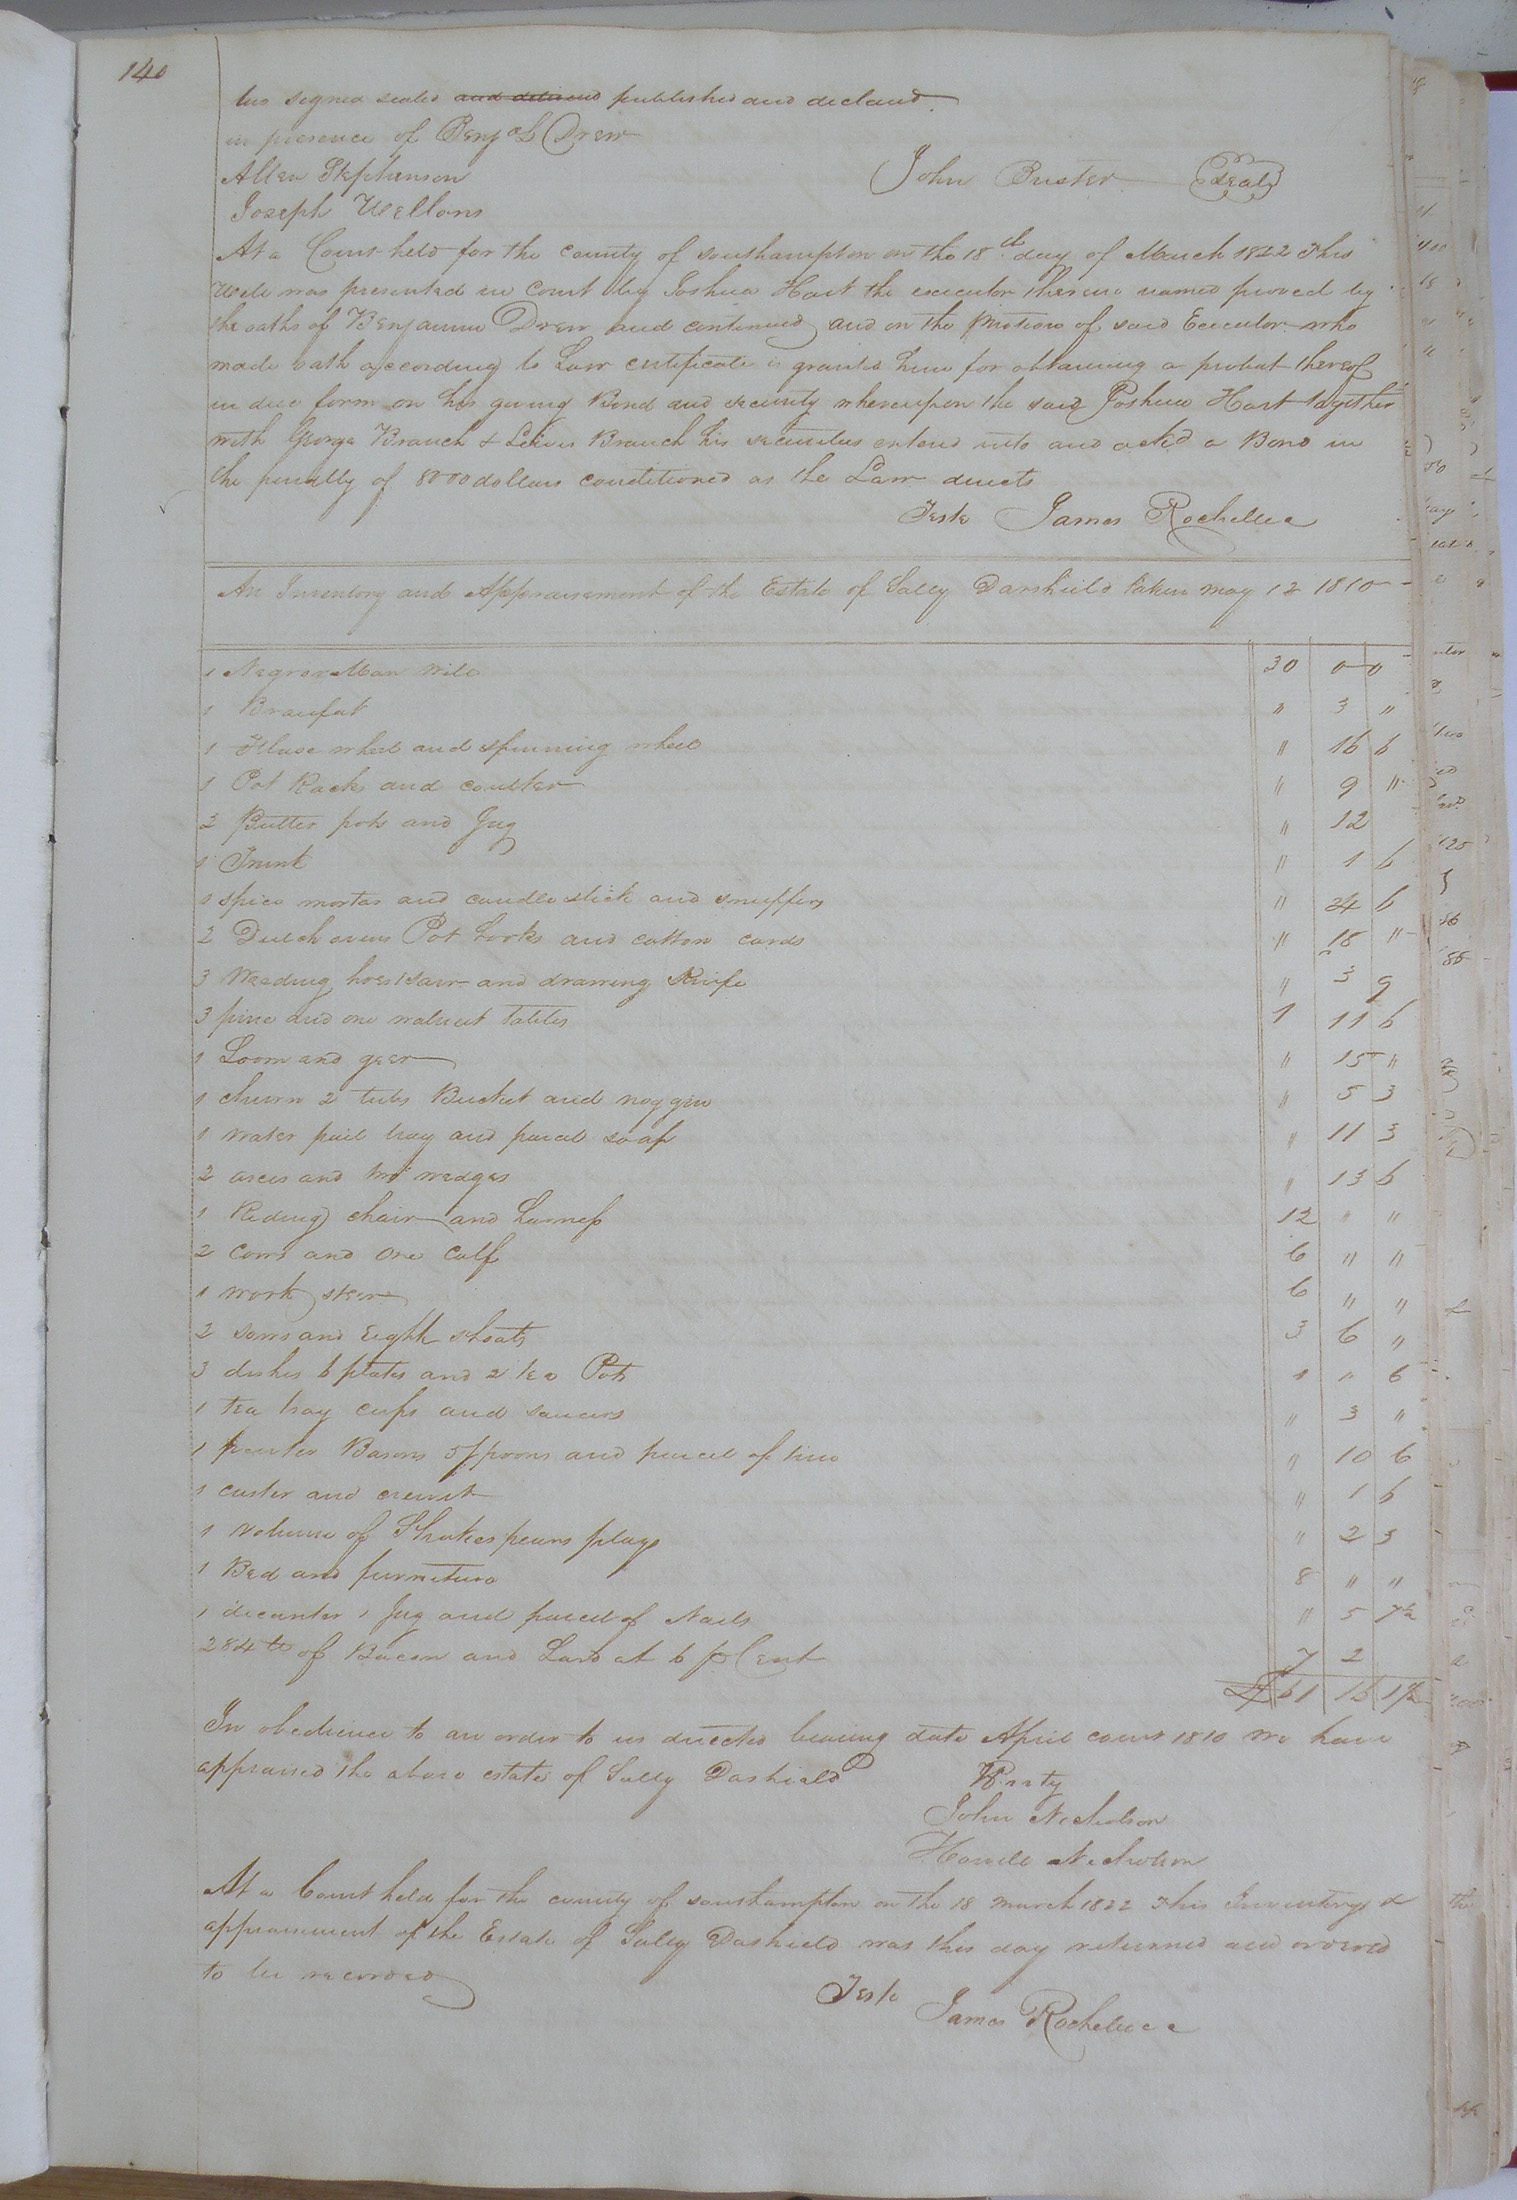 140
signed sealed and delivered published and declared
in presence of Benja L Drew
Allen Stephenson
John Buster Seal
Joseph Wellons
At a Court held for the county of Southampton on the 18th day of March 1822 This
Will was presented in Court by Joshua Hart the executor therein named proved by
the oaths of Benjamin Drew and continued and on the Motion of said Executor who
made oath according to Law certificate is granted him for obtaining a probat thereof
in due form on his giving Bond and security whereupon the said Joshua Hart together
with George Branch & Branch his securities entered into and a Bond in
the penalty of 8000 dollars conditioned as the Law directs
Teste James Rochelle
An Inventory and Appraisement of the Estate of Sally Darshield taken may 12 1810
1 Negroe Man Will 30 0 0
1 " 3 "
1 wheel and spinning wheel " 16 6
1 Pot Racks and coulter " 9 "
2 Butter pots and Jug " 12
1 Trunk " 1 6
1 spice mortar and candle stick and snuffers " 24 6
2 Dutch ovens Pot hooks and cotton cards " 18 "
3 Weeding hoes 1 saw and drawing Knife " 3 9
3 pine and one walnut tables 1 11 6
1 Loom and geer " 15 "
1 churn 2 tubs Bucket and noggin " 5 3
1 water pail tray and parcel soap " 11 3
2 axes and two wedges " 13 6
1 Riding chair and harness 12 " "
2 cows and one calf 6 " "
1 work steer 6 " "
2 sows and Eight shoats 3 6 "
3 dishes 6 plates and 2 tea Pots 1 " 6
1 tea tray cups and saucers " 3 "
1 pewter Basons 5 spoons and parcel of tin " 10 6
1 caster and crewit " 1 6
1 volume of Shakespears plays " 2 3
1 Bed and furniture 8 " "
1 decanter 1 Jug and parcel of Nails " 5 7½
284 lb of Bacon and Lard at 6 p Cent 7 2
£ 61 16 1½
In obedience to an order to us directed bearing date April court 1810 we have
appraised the above estate of Sally Dashield
John Nicholson
Howell Nicholson
At a Court held for the county of Southampton on the 18 march 1822 This Inventory &
appraisement of the Estate of Sally Dashield was this day returned and ordered
to be recorded
Teste James Rochelle